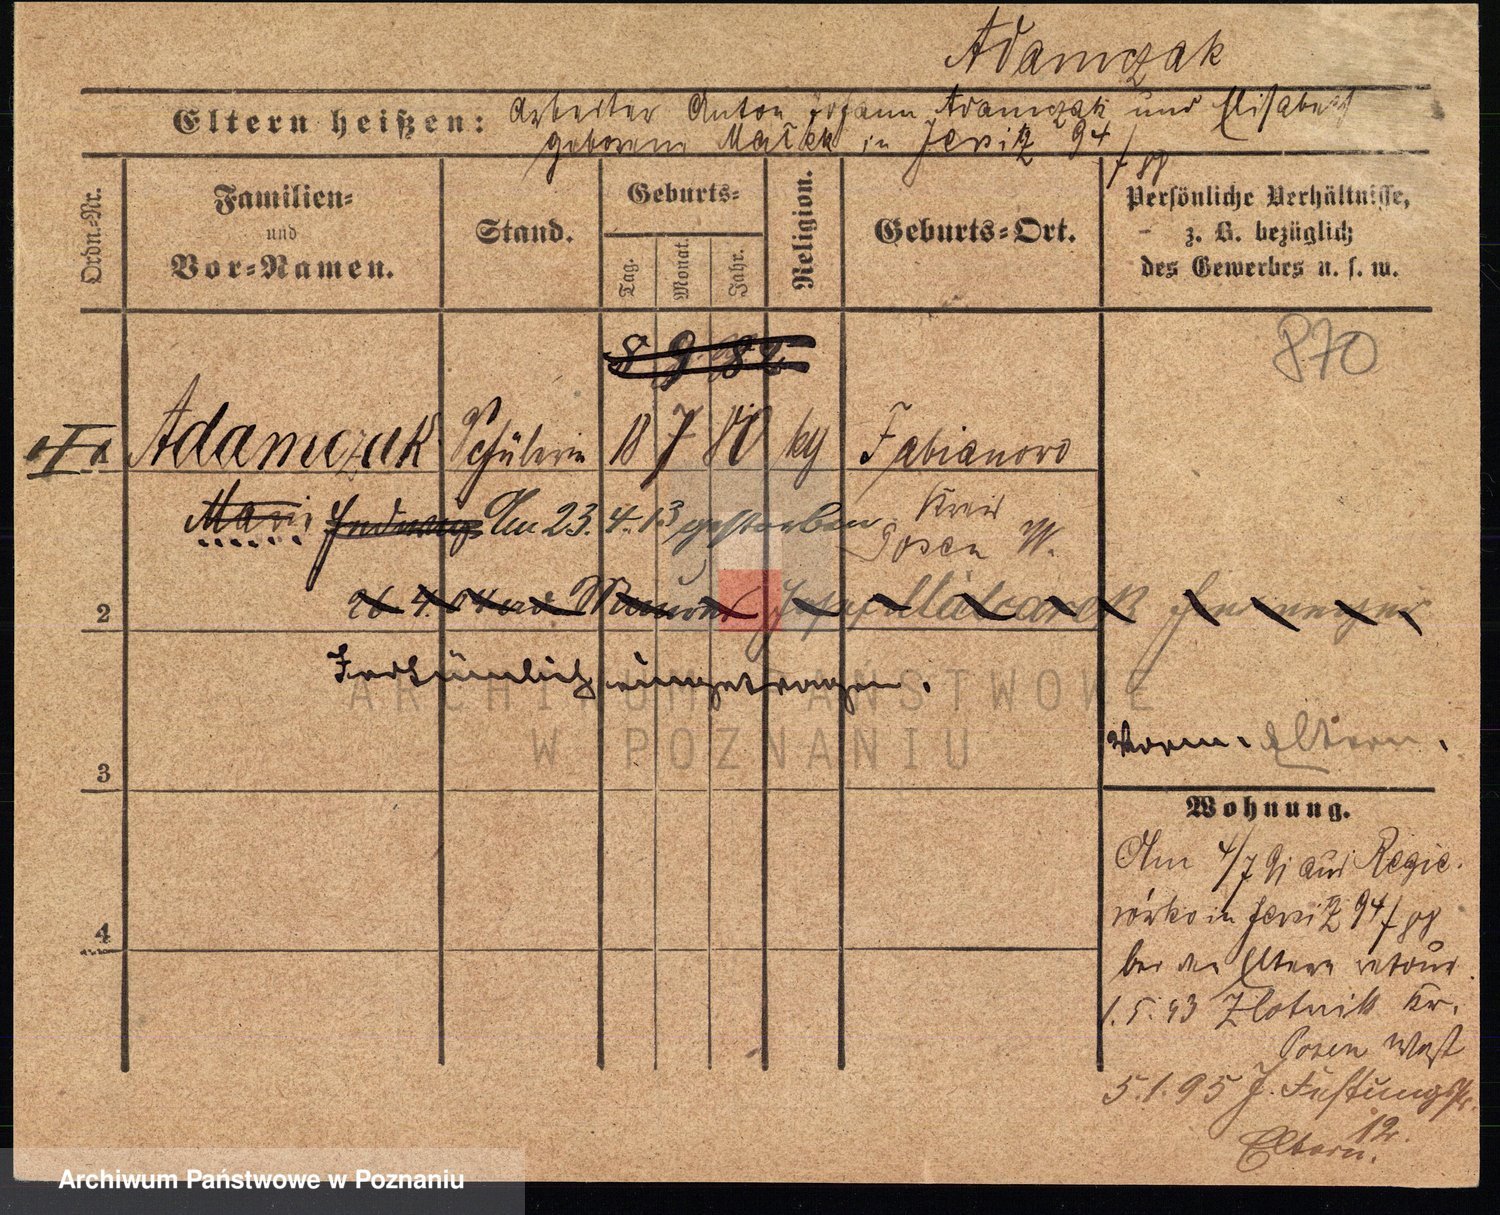 Adamczak
Eltern heißen: Arbeiter Anton Johann Adamczak und Elisabeth
geborene in Jersitz 94/88
Ordn.-Nr.
Familien- und Vor-Namen.
Stand.
Geburts-
Tag. Monat. Jahr.
Religion.
Geburts-Ort.
Persönliche Verhältnisse,
z. B. bezüglich
des Gewerbes u. s. w.
8 9 82
870
1 Adamczak Schülerin 18 7 80 kg Fabianowo
Mari Hedwig Am 23. 4. 13 gestorben Kreis
Posen W.
2 26 4. 04
Irrtümlich eingetragen.
Vorm. Eltern.
3
Wohnung.
Am 4/7 91 aus
in Jersitz 94/88
bei den Eltern retour
4
1.5.93 Zlotnik Kr.
Posen West
5.1.95 J. Festungsstr.
12.
Eltern.
ARCHIWUM PAŃSTWOWE
W POZNANIU
Archiwum Państwowe w Poznaniu